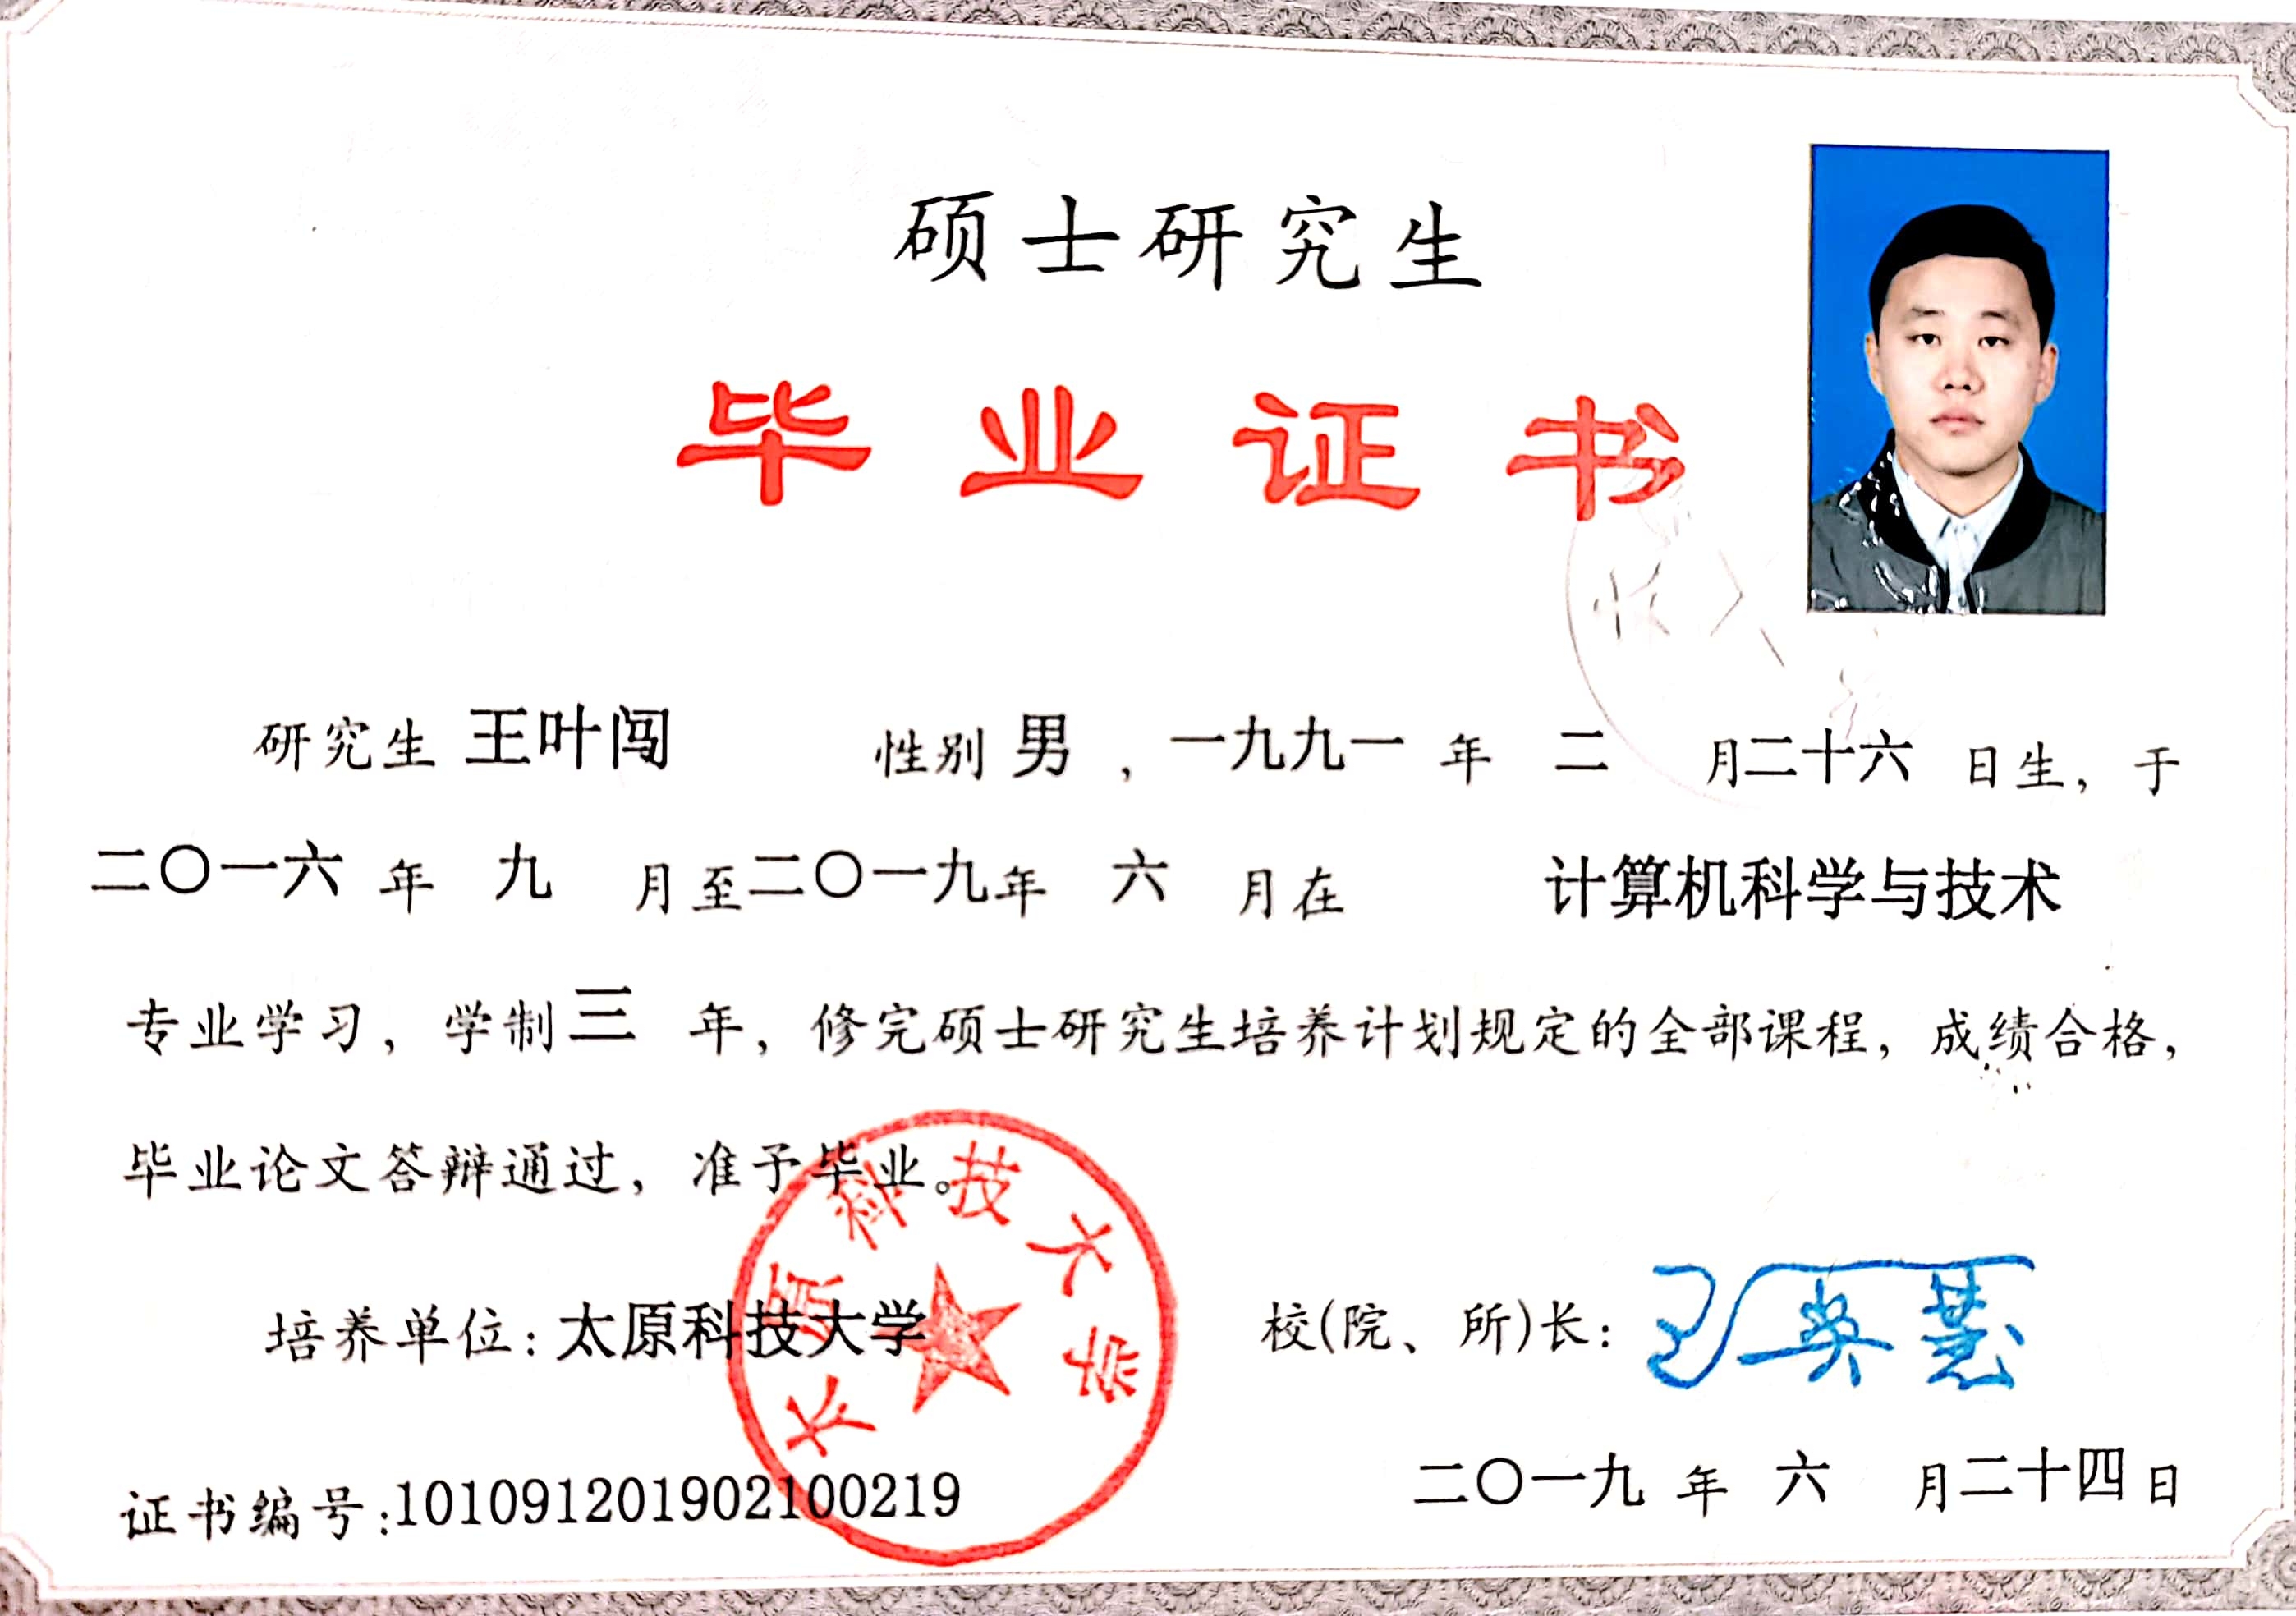 硕士研究生
毕业证书
研究生 王叶闯 性别 男 , 一九九一 年 二 月二十六 日生, 于
二〇一六 年 九 月至二〇一九年 六 月在 计算机科学与技术
专业学习, 学制三 年, 修完硕士研究生培养计划规定的全部课程, 成绩合格,
毕业论文答辩通过, 准予毕业。
太原科技大学
培养单位: 太原科技大学 校(院、所)长:
证书编号:101091201902100219 二〇一九 年 六 月二十四日